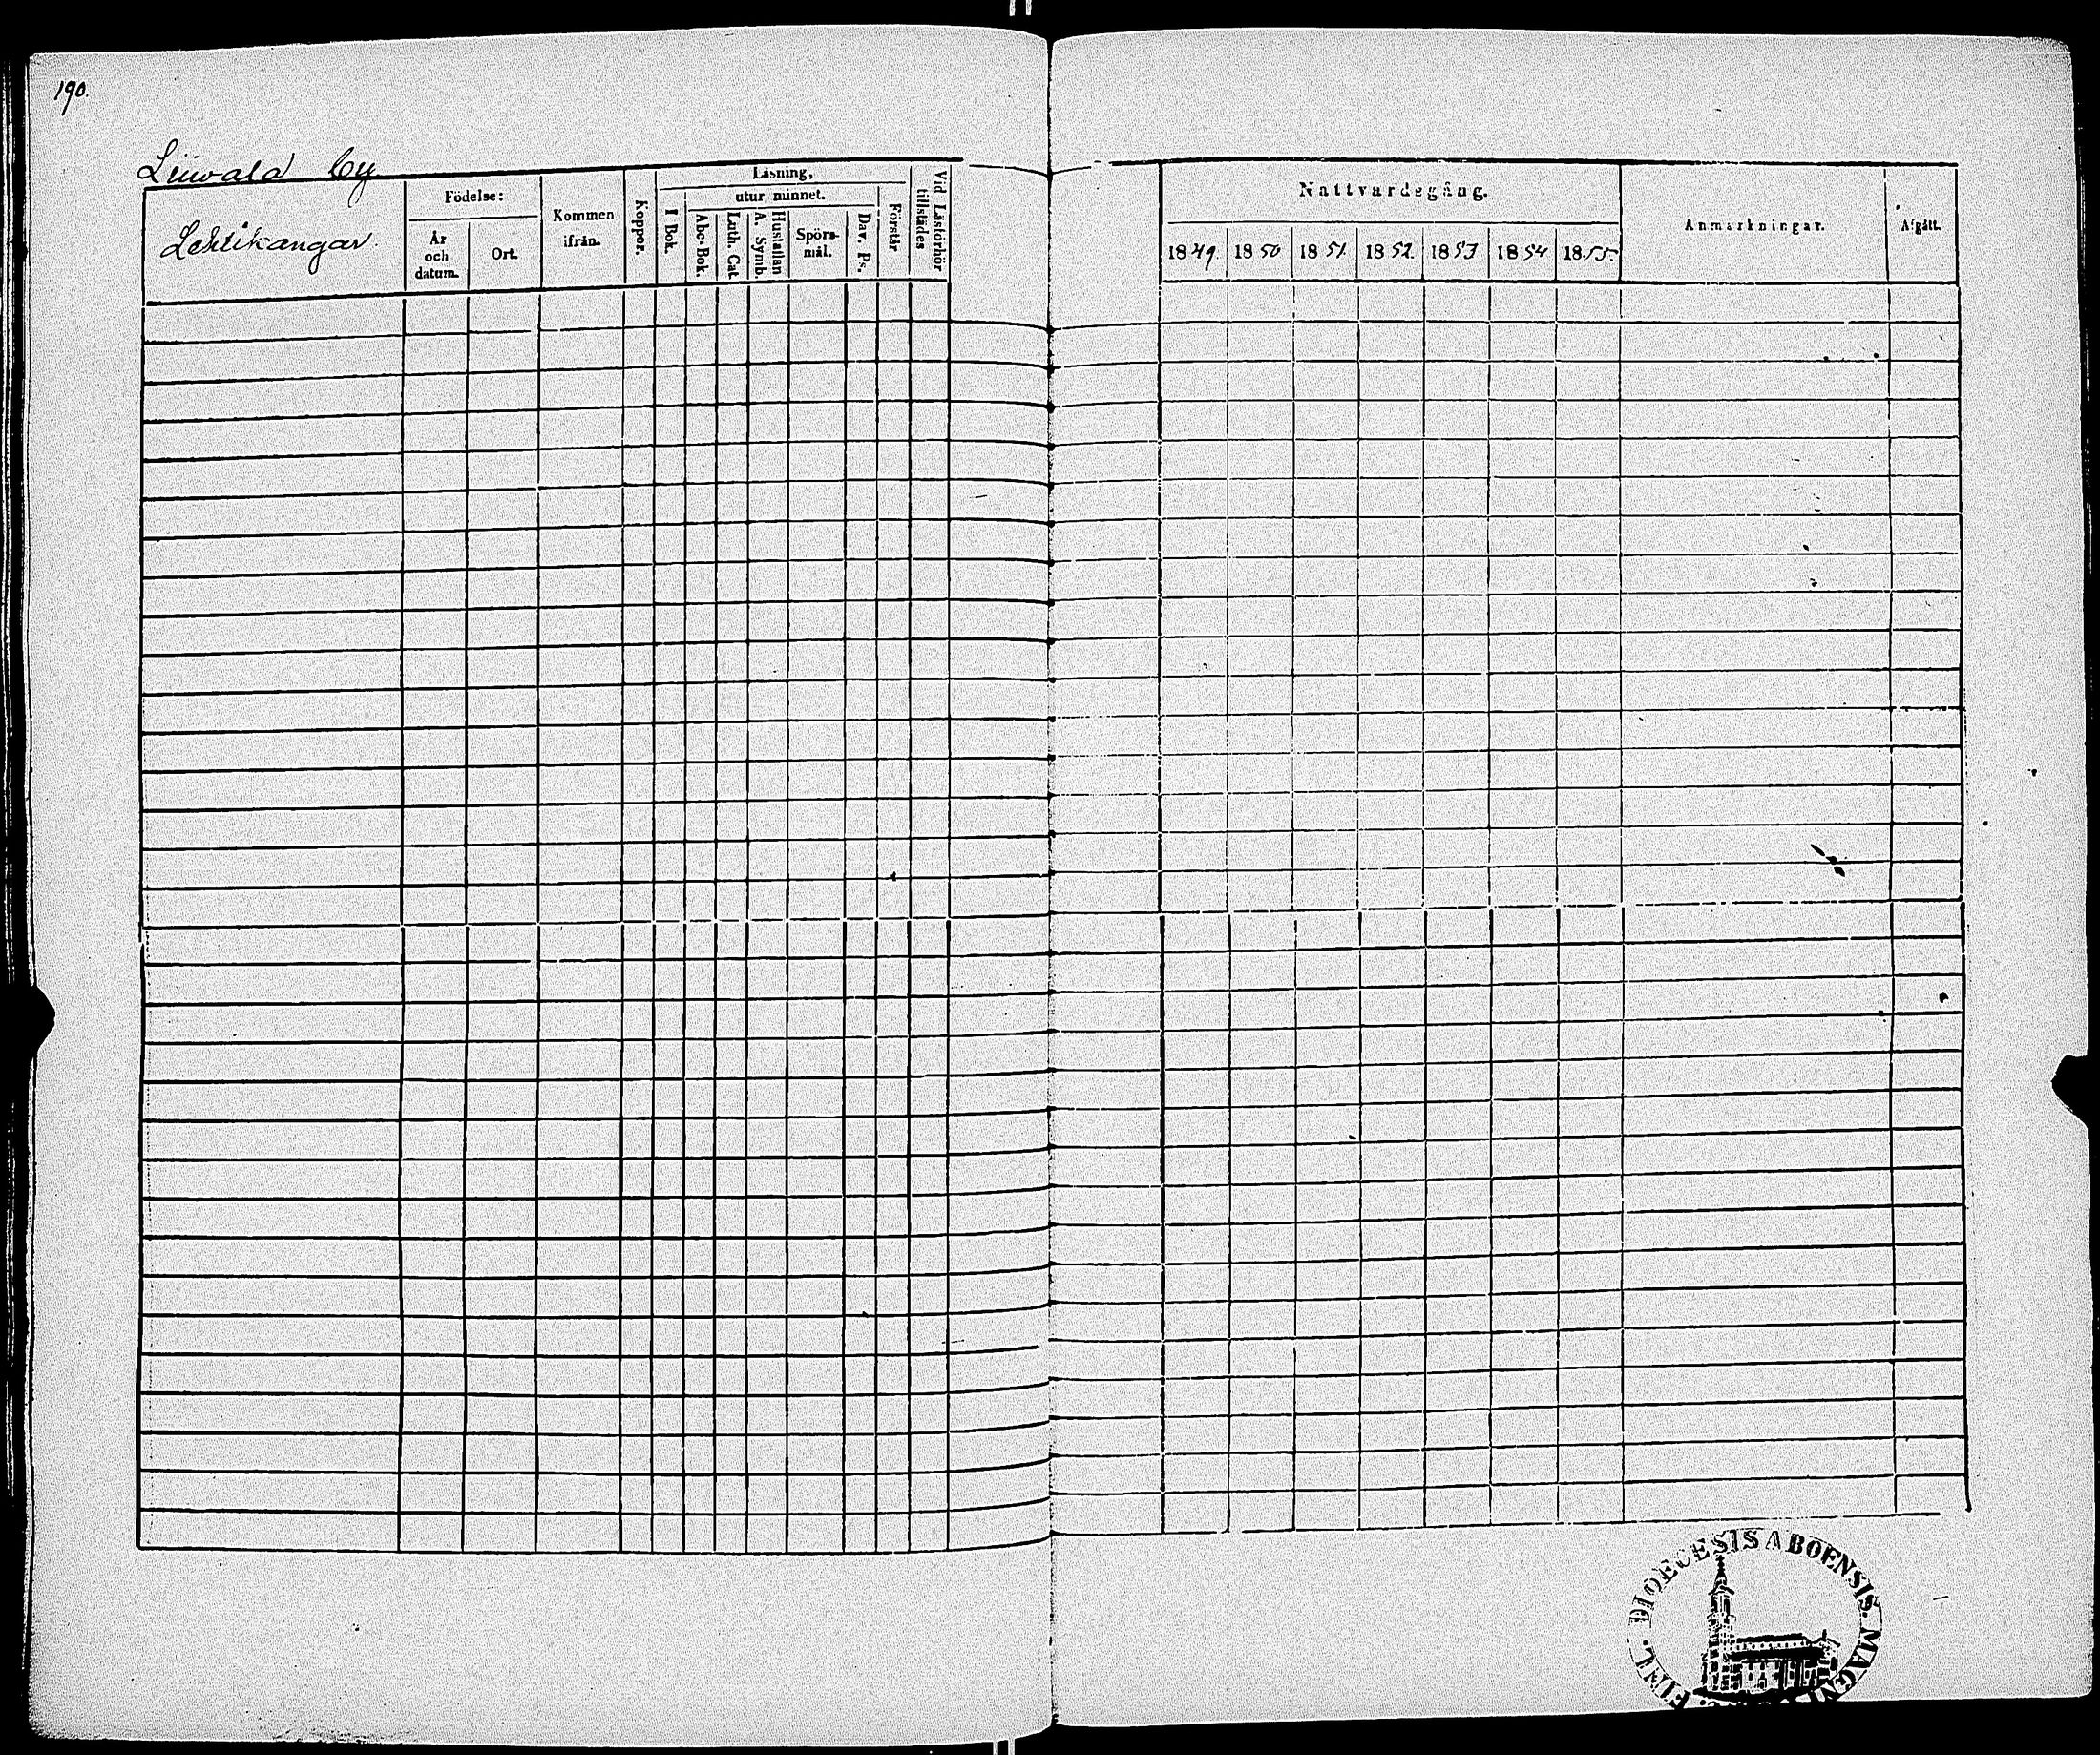 190.
Liiwala by
Lehtikangar.
Födelse:
År och datum.
Ort.
Kommen ifrån.
Koppor.
Läsning,
I Bok.
utur minnet.
Abc-Bok.
Luth. Cat.
Hustaflan A. Symb.
Spörs-mål.
Dav. Ps.
Förstår
Vid Läsförhör tillstädes
Nattvardsgång.
1849.
1850
1851.
1852.
1853
1854
1855.
Anmärkningar.
Afgått.
DIOECESIS ABOENSIS. MAGNI FINL.